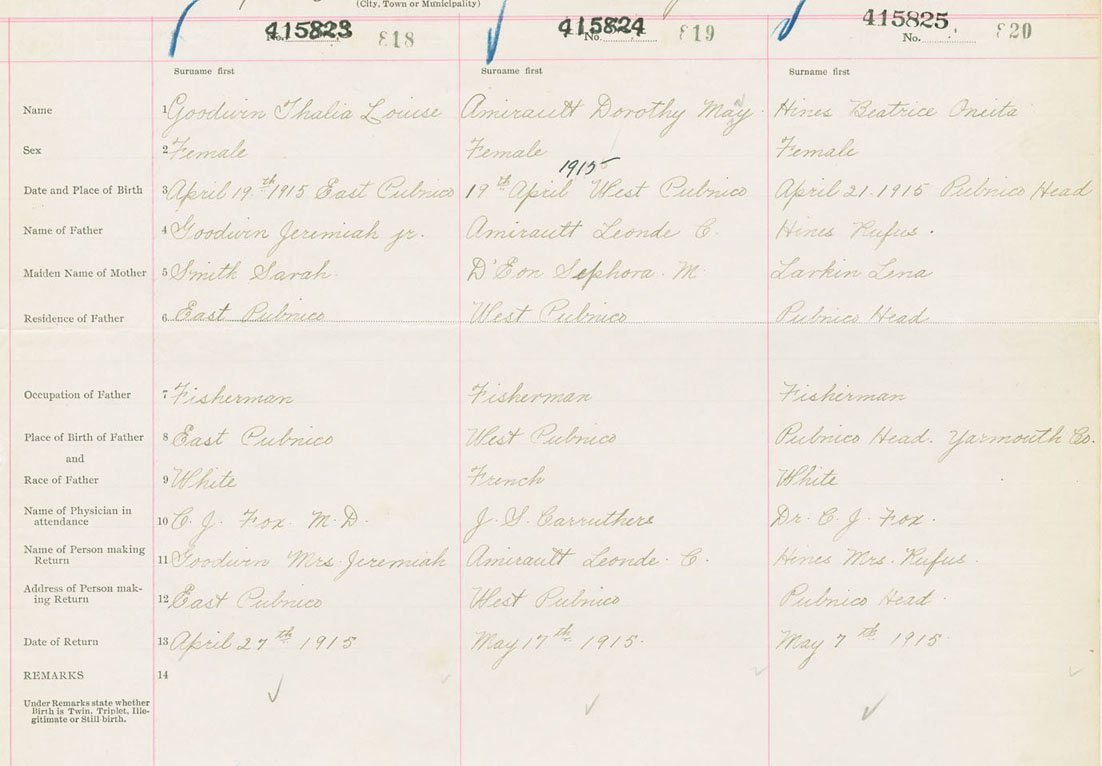 (City, Town or Municipality)
415823 No. 818 415824 No. 819 415825 No. 820
Surname first Surname first Surname first
Name 1 Goodwin Thalia Louise Amirault Dorothy May Hines Beatrice Oneita
Sex 2 Female Female Female
1915
Date and Place of Birth 3 April 19th 1915 East Pubnico 19th April West Pubnico April 21. 1915 Pubnico Head
Name of Father 4 Goodwin Jeremiah jr. Amirault Leonde C. Hines Rufus.
Maiden Name of Mother 5 Smith Sarah. D'Eon Sephora. M. Larkin Lena
Residence of Father 6 East Pubnico West Pubnico Pubnico Head
Occupation of Father 7 Fisherman Fisherman Fisherman
Place of Birth of Father 8 East Pubnico West Pubnico Pubnico Head. Yarmouth Co.
and
Race of Father 9 White French White
Name of Physician in attendance 10 C. J. Fox. M.D. J. S. Carruthers Dr. C. J. Fox.
Name of Person making Return 11 Goodwin Mrs. Jeremiah Amirault Leonde. C. Hines Mrs. Rufus.
Address of Person mak-ing Return 12 East Pubnico West Pubnico Pubnico Head.
Date of Return 13 April 27th 1915 May 17th 1915. May 7th 1915.
REMARKS 14
Under Remarks state whether
Birth is Twin, Triplet, Ille-
gitimate or Still birth.